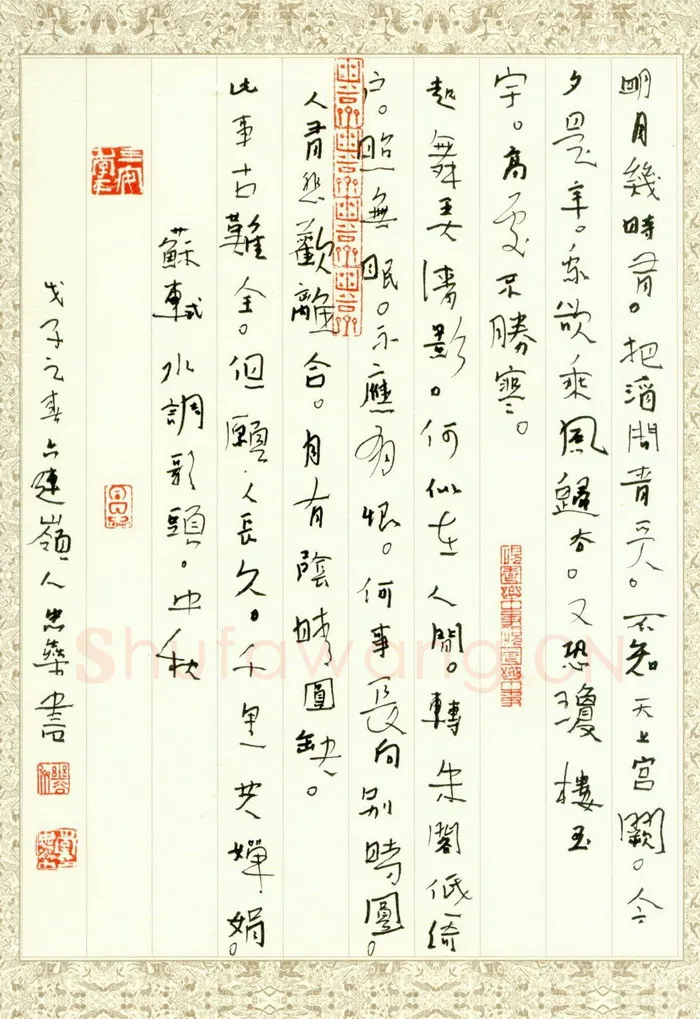 明月幾時有。把酒問青天。不知天上宮闕。今
夕是年。我欲乘風歸去。又恐瓊樓玉
宇。高處不勝寒。
起舞弄清影。何似在人間。轉朱閣低綺
户。照無眠。不應有恨。何事長向別時圓。
人有悲歡離合。月有陰晴圓缺。
此事古難全。但願人長久。千里共嬋娟。
蘇軾水調歌頭。中秋
戊子之春六連嶺人忠藥書
Shufawang.CN